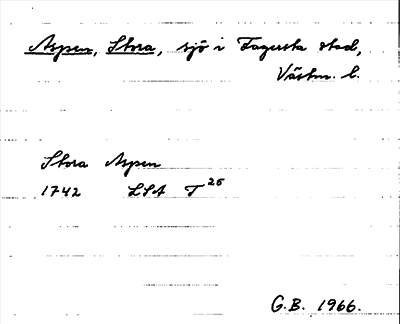 Aspen, Stora, sjö i Fagersta stad,
Västm. l.
Stora Aspen
1742 LSA T 26
G.B. 1966.